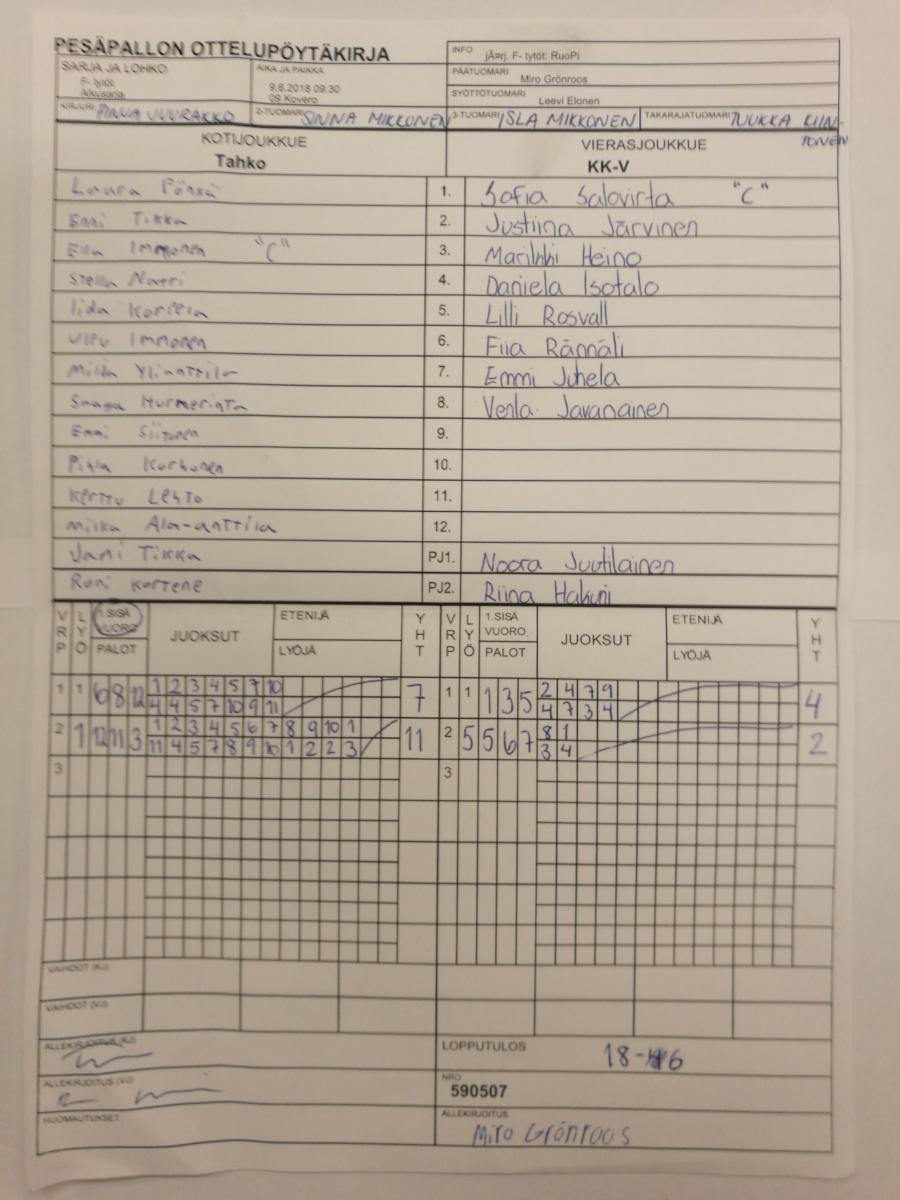 PESÄPALLON OTTELUPÖYTÄKIRJA
INFO jÃ¤rj. F- tytöt: RuoPi
SARJA JA LOHKO
F- tytöt
Alkusarja
AIKA JA PAIKKA
9.6.2018 09:30
09 Kovero
PÄÄTUOMARI Miro Grönroos
SYÖTTÖTUOMARI Leevi Elonen
KIRJURI PINNA JUURAKKO 2-TUOMARI SINNA MIKKONEN 3-TUOMARI ISLA MIKKONEN TAKARAJATUOMARI TUUKKA KIIN-
TONEN
KOTIJOUKKUE VIERASJOUKKUE
Tahko KK-V
Laura Pönkä 1. Sofia Salovirta "C"
Enni Tikka 2. Justiina Järvinen
Ella Immonen "C" 3. Heino
Stella Naeri 4. Daniela Isotalo
Iida 5. Lilli Rosvall
Immonen 6. Fiia Rännäli
Milda Ylianttila 7. Emmi Juhela
Saaga Hurmerinta 8. Venla Javanainen
Enni Siitonen 9.
Pihla Korhonen 10.
Kerttu Lehto 11.
Milka Ala-anttila 12.
Jani Tikka PJ1. Noora Juutilainen
Roni Kortene PJ2. Riina Hakuni
VRP LYÖ 1.SISÄ VUORO PALOT JUOKSUT ETENIJÄ LYÖJÄ YHT VRP LYÖ 1.SISÄ VUORO PALOT JUOKSUT ETENIJÄ LYÖJÄ YHT
1 1 6 8 12 1 2 3 4 5 7 10 7 1 1 1 3 5 2 4 7 9 4
4 4 5 7 10 9 11 4 7 3 4
2 1 12 11 3 1 2 3 4 5 6 7 8 9 10 1 11 2 5 5 6 7 8 1 2
11 4 5 7 8 9 10 1 2 2 3 3 4
3 3
VAIHDOT (KJ)
VAIHDOT (VJ)
ALLEKIRJOITUS (KJ) LOPPUTULOS 18-6
ALLEKIRJOITUS (VJ) NRO
590507
HUOMAUTUKSET ALLEKIRJOITUS
Miro Grönroos